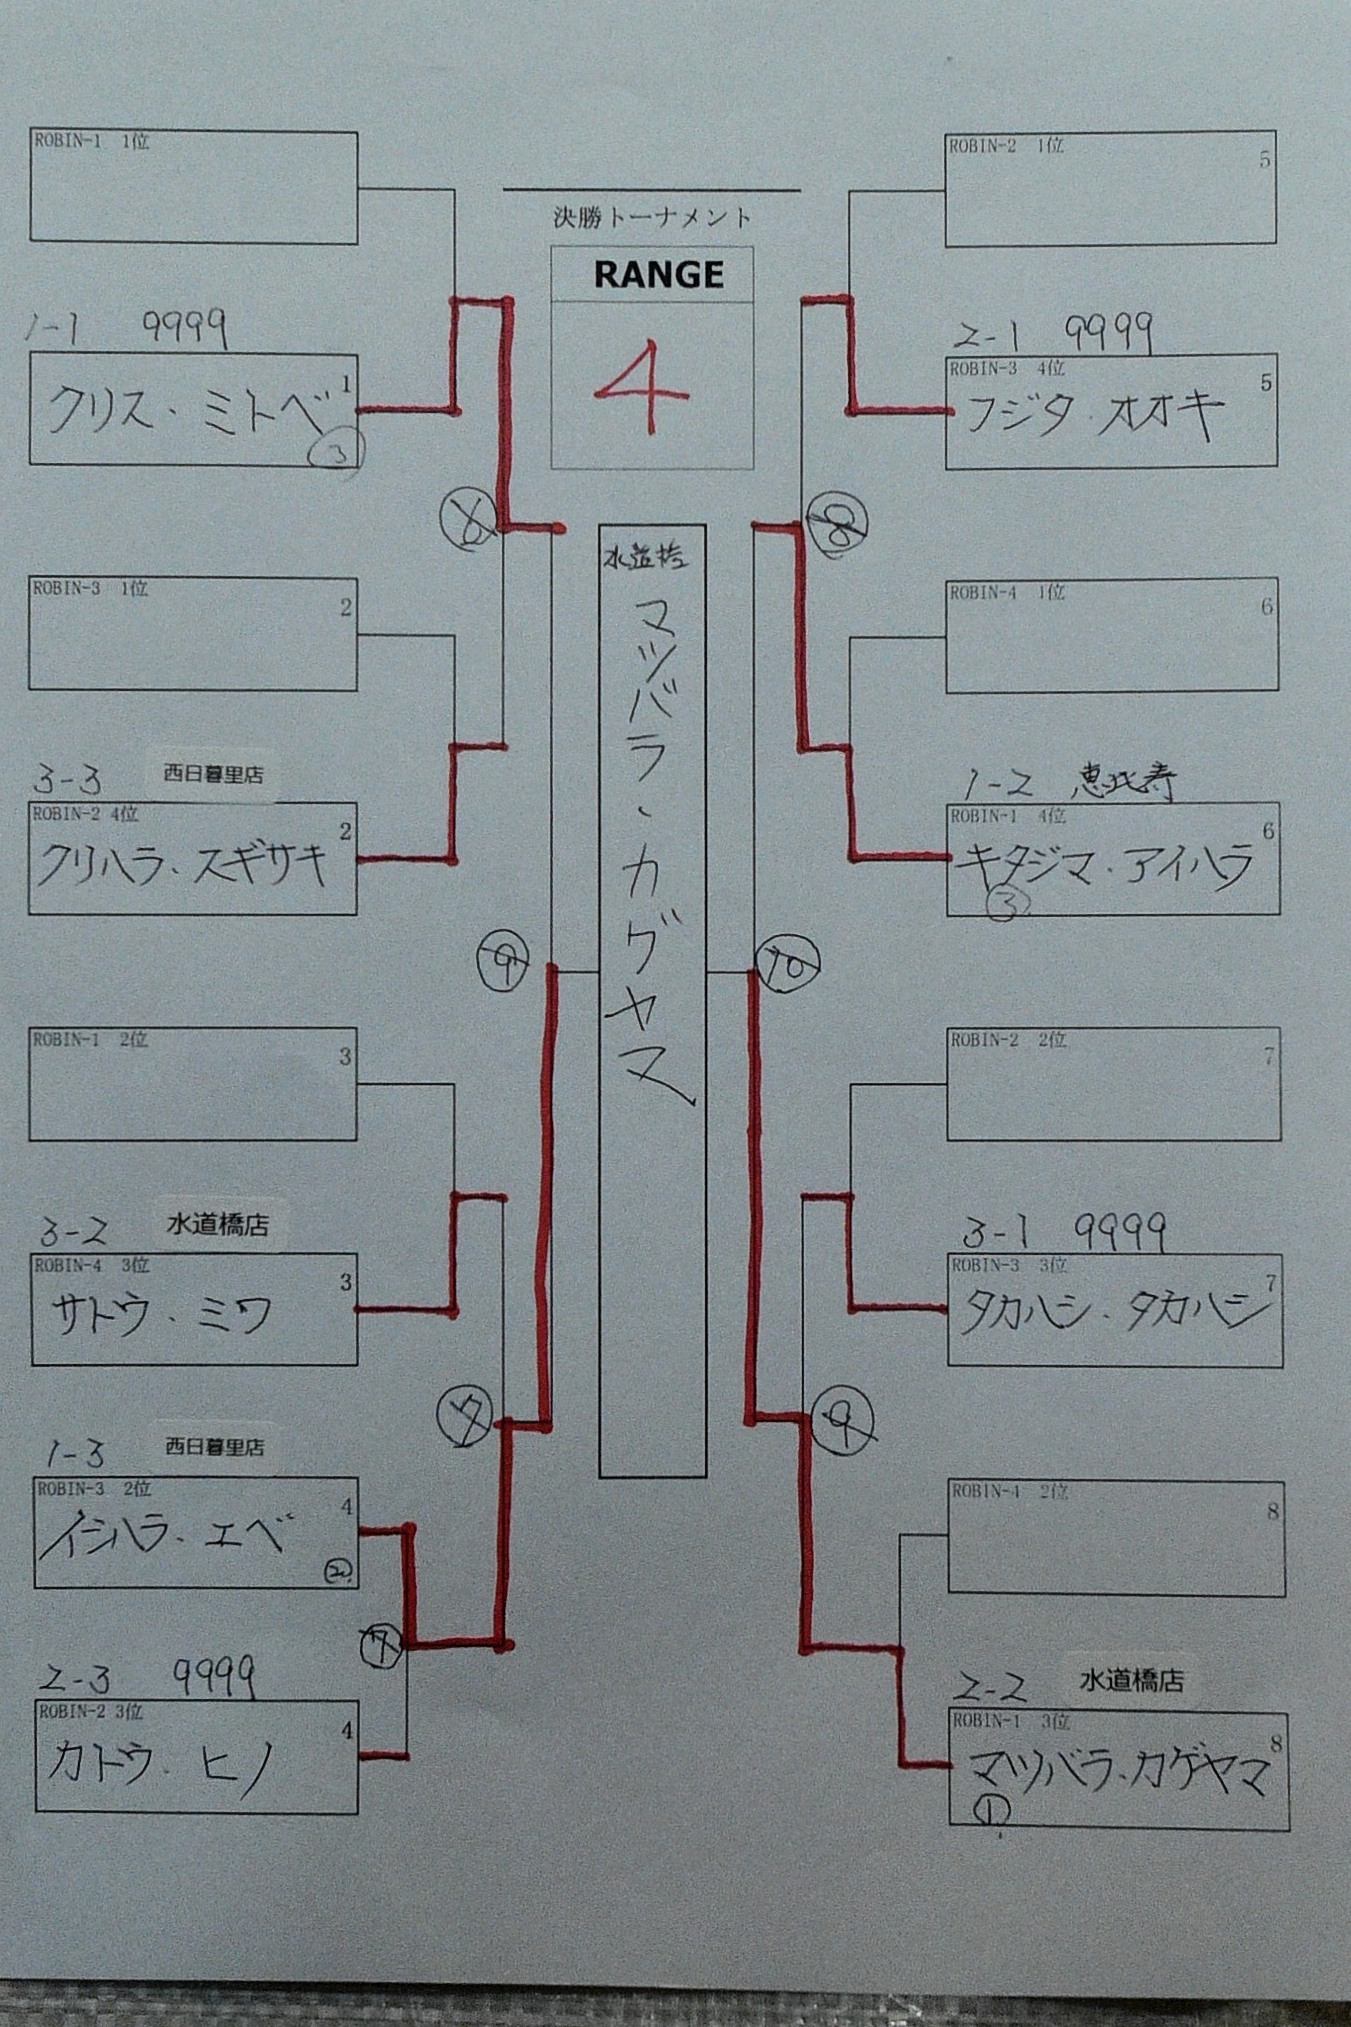 決勝トーナメント
RANGE
4
水道橋
マツバラ・カゲヤマ
ROBIN-1 1位
1-1 9999
クリス・ミトベ 1
③
⑧
ROBIN-3 1位
2
3-3 西日暮里店
ROBIN-2 4位
2
クリハラ・スギサキ
⑨
ROBIN-1 2位
3
3-2 水道橋店
ROBIN-4 3位
3
サトウ・ミワ
⑦
1-3 西日暮里店
ROBIN-3 2位
4
イシハラ・エベ
②
⑦
2-3 9999
ROBIN-2 3位
4
カトウ・ヒノ
ROBIN-2 1位
5
2-1 9999
ROBIN-3 4位
5
フジタ・オオキ
⑧
ROBIN-4 1位
6
1-2 恵比寿
ROBIN-1 4位
6
キタジマ・アイハラ
③
⑩
ROBIN-2 2位
7
3-1 9999
ROBIN-3 3位
7
タカハシ・タカハシ
⑨
ROBIN-4 2位
8
2-2 水道橋店
ROBIN-1 3位
8
マツバラ・カゲヤマ
①